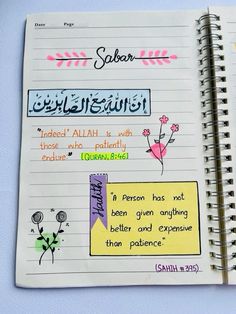 Date Page
Sabar
ان الله مع الصابرين
"Indeed' ALLAH is with
those who patiently
endure" [QURAN, 8:46]
Hadith
"A Person has not
been given anything
better and expensive
than patience."
(SAHIH #395)